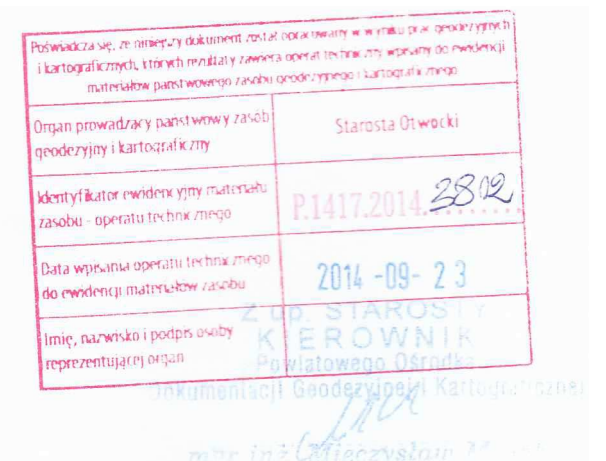 Poświadcza się, że niniejszy dokument został opracowany w wyniku prac geodezyjnych
i kartograficznych, których rezultaty zawiera operat techniczny wpisany do ewidencji
materiałów państwowego zasobu geodezyjnego i kartograficznego
Organ prowadzący państwowy zasób
geodezyjny i kartograficzny
Starosta Otwocki
Identyfikator ewidencyjny materiału
zasobu - operatu technicznego
P.1417.2014.2802
Data wpisania operatu technicznego
do ewidencji materiałów zasobu
2014 -09- 23
Imię, nazwisko i podpis osoby
reprezentującej organ
Z up. STAROSTY
KIEROWNIK
Powiatowego Ośrodka
Dokumentacji Geodezyjnej i Kartograficznej
mgr inż. Mieczysław